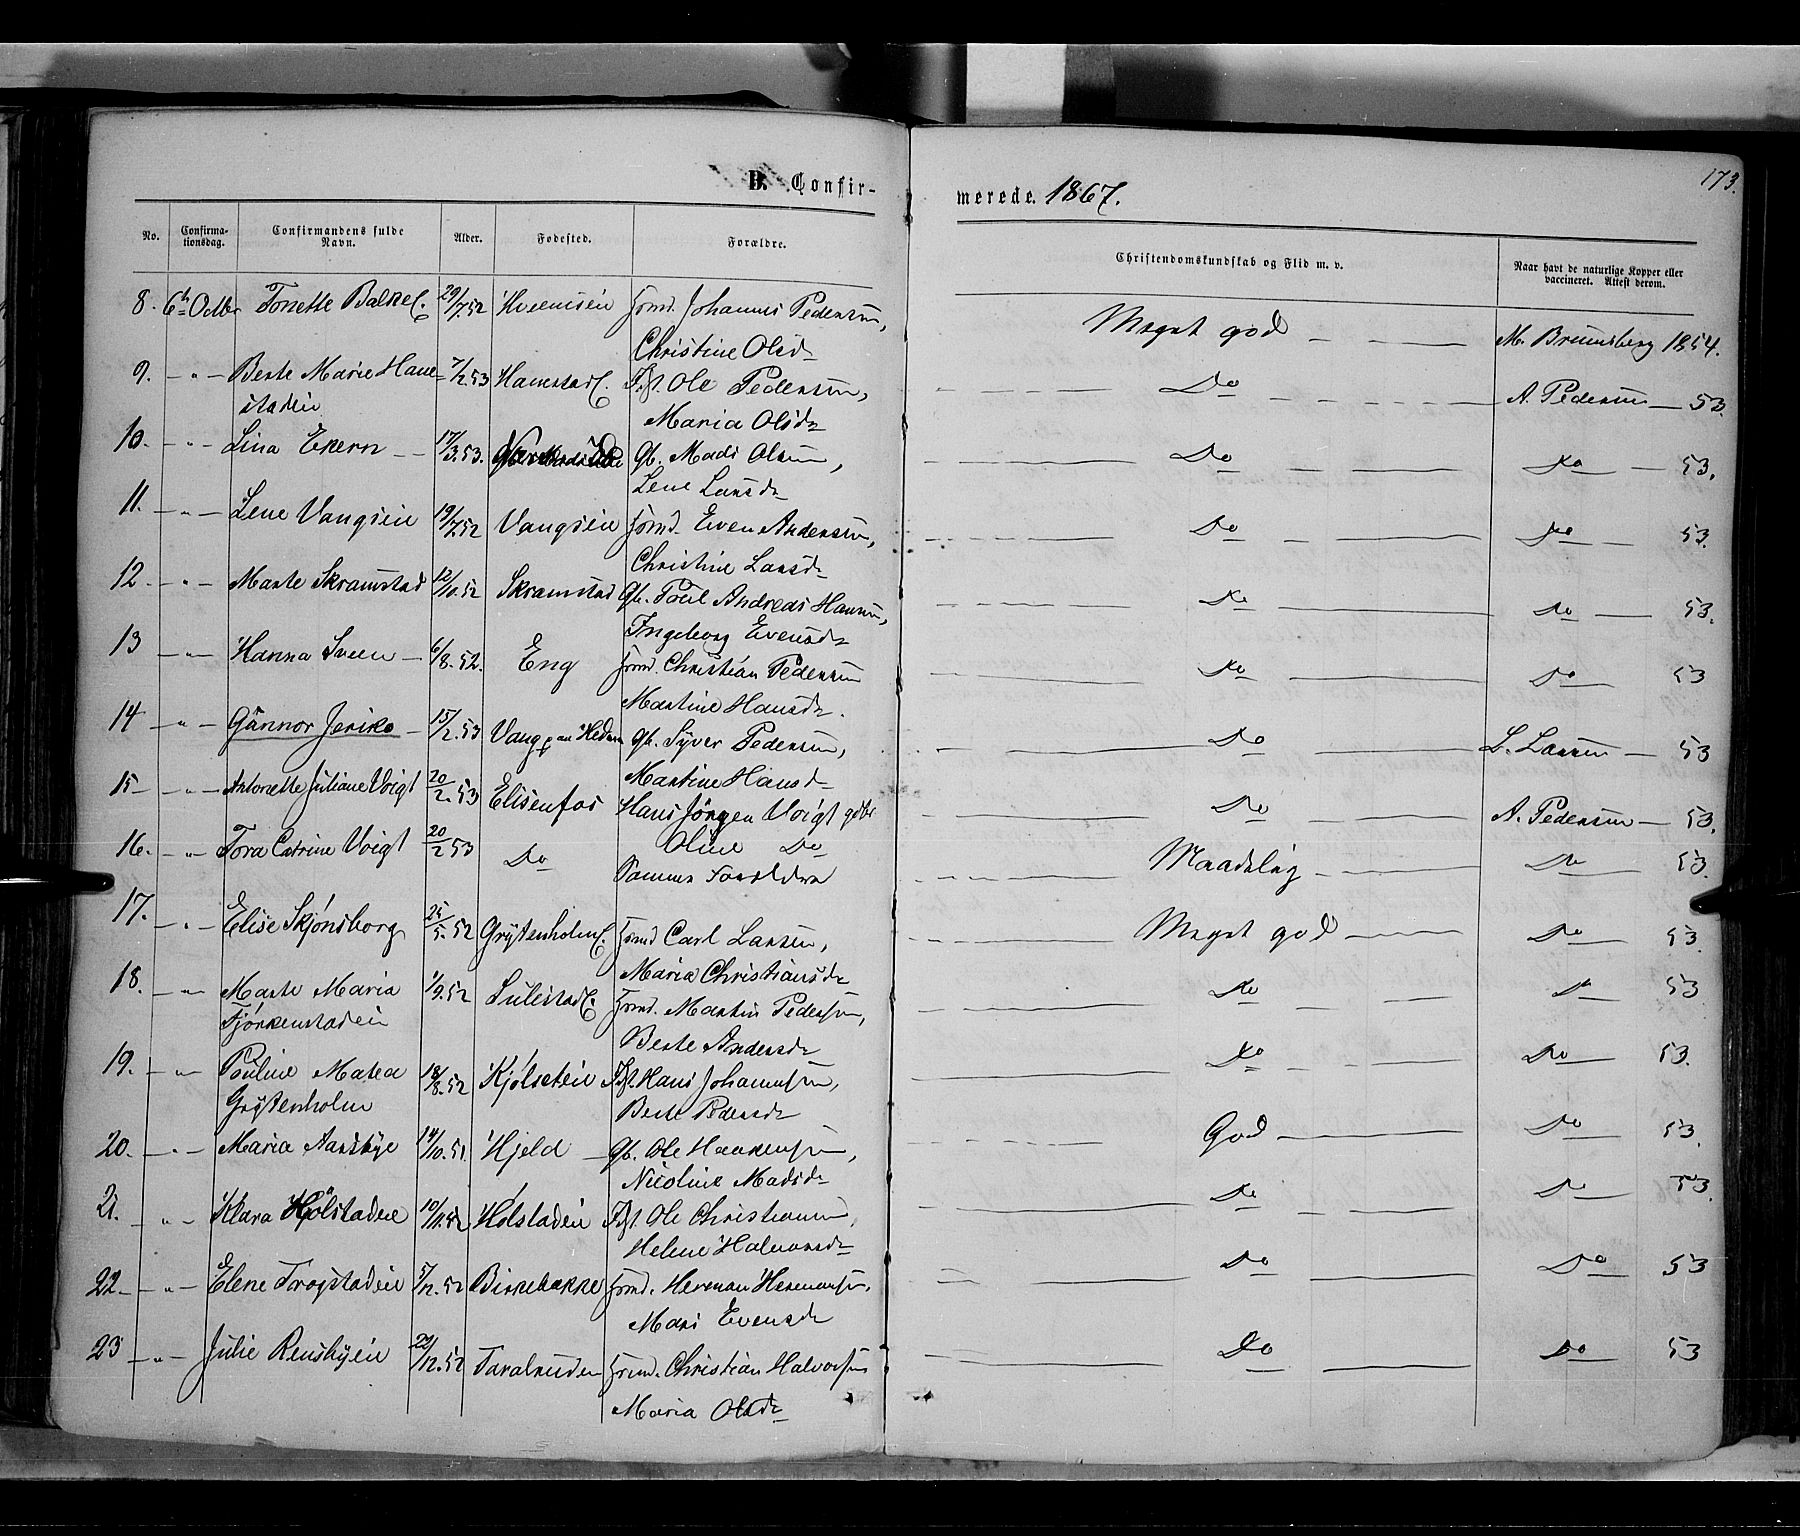 173.
B. Confir-
merede. 1867.
No. Confirma-tionsdag. Confirmandens fulde Navn. Alder. Fødested. Forældre. Christendomskundskab og Flid m. v. Naar havt de naturlige Kopper eller vaccineret. Attest derom.
8. 6te Octbr Tonette Balke 29/7.52 Hveemseie Johannes Pedersen, Meget god M. Bruunsberg 1854.
Christine Olsdr
9. - " - Berte Marie Hane- 7/2.53 Ole Pedersen, Do A. Pedersen 53.
stadeie Maria Olsdr
10. - " - Lina Ekern 17/3.53. Gb. Mads Olsen, Do Do 53.
Lene Larsdr
11. - " - Lene Vangseie 19/7.52 Vangseie Even Andersen, Do Do 53.
Christine Larsdr
12 - " - Marte Skramstad 12/10.52 Skramstad Gb. Poul Andreas Hansen, Do Do 53.
Ingeborg Evensdr
13 - " - Hanna Sveen 6/8.52. Eng Christian Pedersen Do Do 53
Martine Hansdr.
14 - " - Gunnor Jeriko 15/2.53 Vang paa Hedm Gb. Syver Pedersen, Do L. Larsen 53
Martine Hansd
15 - " - Antonette Juliane Voigt 20/2.53 Elisenfos Hans Jørgen Voigt Do A. Pedersen 53.
Oline Do
16. - " - Tora Catrine Voigt 20/2 53 Do Samme Forældre Maadelig Do 53.
17. - " - Elise Skjønsborg 25/5.52 Grytenholm Carl Larsen, Meget god Do 53.
Maria Christiansdr
18. - " - Marte Maria 1/9.52 Lulestad Martin Pedersen, Do D 53
Tjørkenstadeie Berte Andersdr
19. - " - Pouline Matea 18/8.52 Kjølseteie Hans Johannesen, Do Do 53.
Grytenholm Berte Pedersdr
20. - " - Maria Aarsbye 14/10.51. Hjeld Gb. Ole Haakensen, God Do 53.
Nicoline Madsdr
21. - " - Klara Hølstadeie 10/11.52 Hølstadeie Ole Christiansen, Do Do 53.
Helene Halvorsdr
22. - " - Elene Trogstadeie 5/12.52 Birkebække Herman Hermansen, Do Do 53
Mari Evensdr
23 - " - Julie Rensbyeie 29/12.52 Taralruden Christian Halvorsen Do Do 53
Maria Olsdr